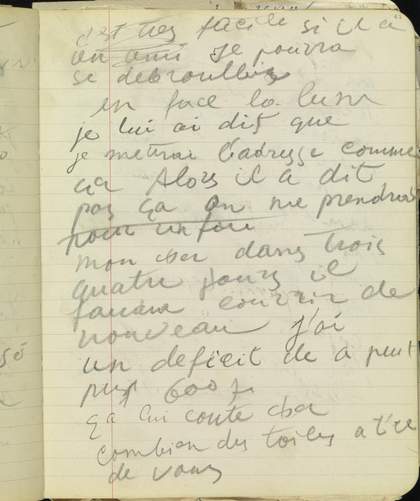 c'est tres facile si il a
un ami je pourra
se debrouiller
en face la lune
je lui ai dit que
je metrai l'adresse comme
ça Alors il a dit
pas ça on me prendrai
pour un fou
mon cher dans trois
quatre jours il
faudra courrir de
nouveau j'ai
un deficit de a peu
pres 600 f
ça lui coute cher
combien des toiles a t'il
de vous